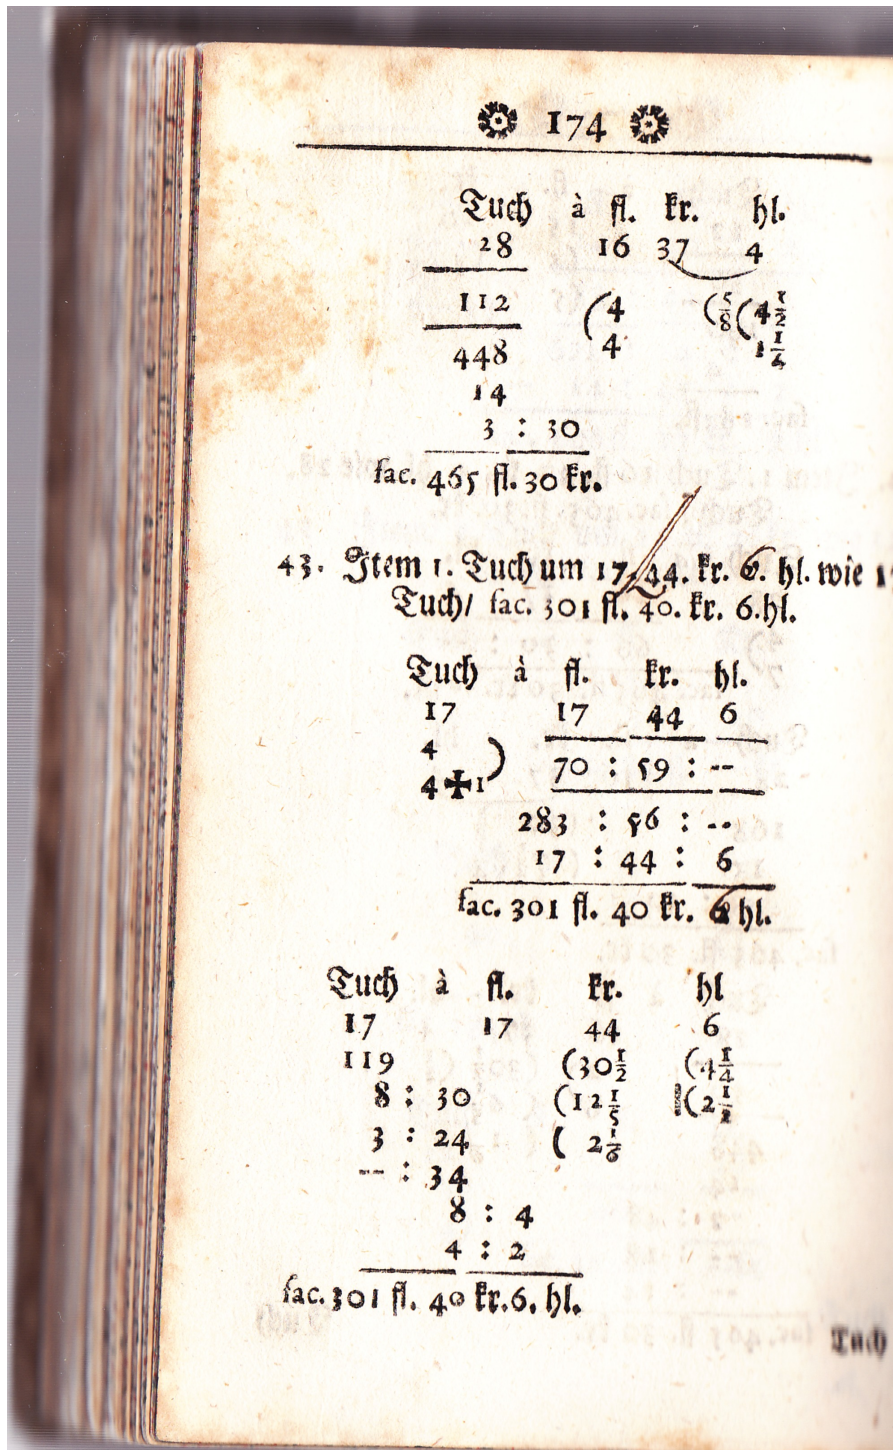 174
Tuch à fl. kr. hl.
28 16 37 4
112 (4 (5/8 (4 1/2
448 4 1 1/4
14
3 : 30
fac. 465 fl. 30 kr.
43. Item 1. Tuch um 17. 44. kr. 6. hl. wie
Tuch/ fac. 301 fl. 40. kr. 6. hl.
Tuch à fl. kr. hl.
17 17 44 6
4 ) 70 : 59 : --
4 ✠ 1
283 : 56 : --
17 : 44 : 6
fac. 301 fl. 40 kr. 6 hl.
Tuch à fl. kr. hl
17 17 44 6
119 (30 1/2 (4 1/4
8 : 30 (12 1/5 (2 1/2
3 : 24 ( 2 1/6
-- : 34
8 : 4
4 : 2
fac. 301 fl. 40 kr. 6. hl.
Tuch